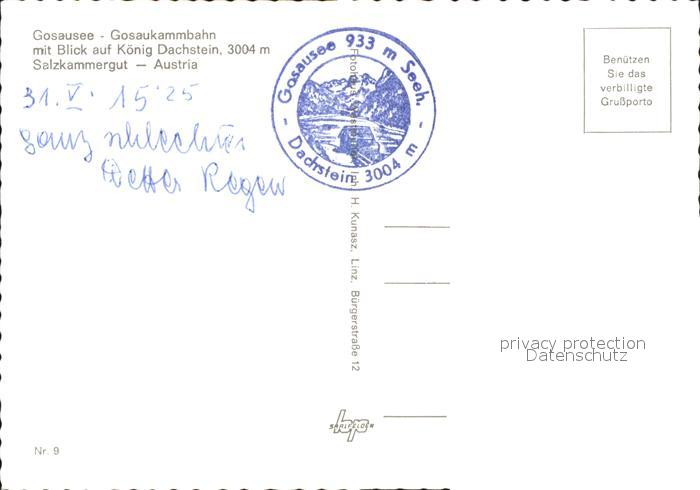 Gosausee - Gosaukammbahn
mit Blick auf König Dachstein, 3004 m
Salzkammergut — Austria
31. V. 15 25
ganz schlechtes
Wetter Regen
- Gosausee 933 m Seeh. -
Dachstein 3004 m
Benützen
Sie das
verbilligte
Grußporto
Inh. H. Kunasz, Linz, Bürgerstraße 12
privacy protection
Datenschutz
SAALFELDEN
Nr. 9